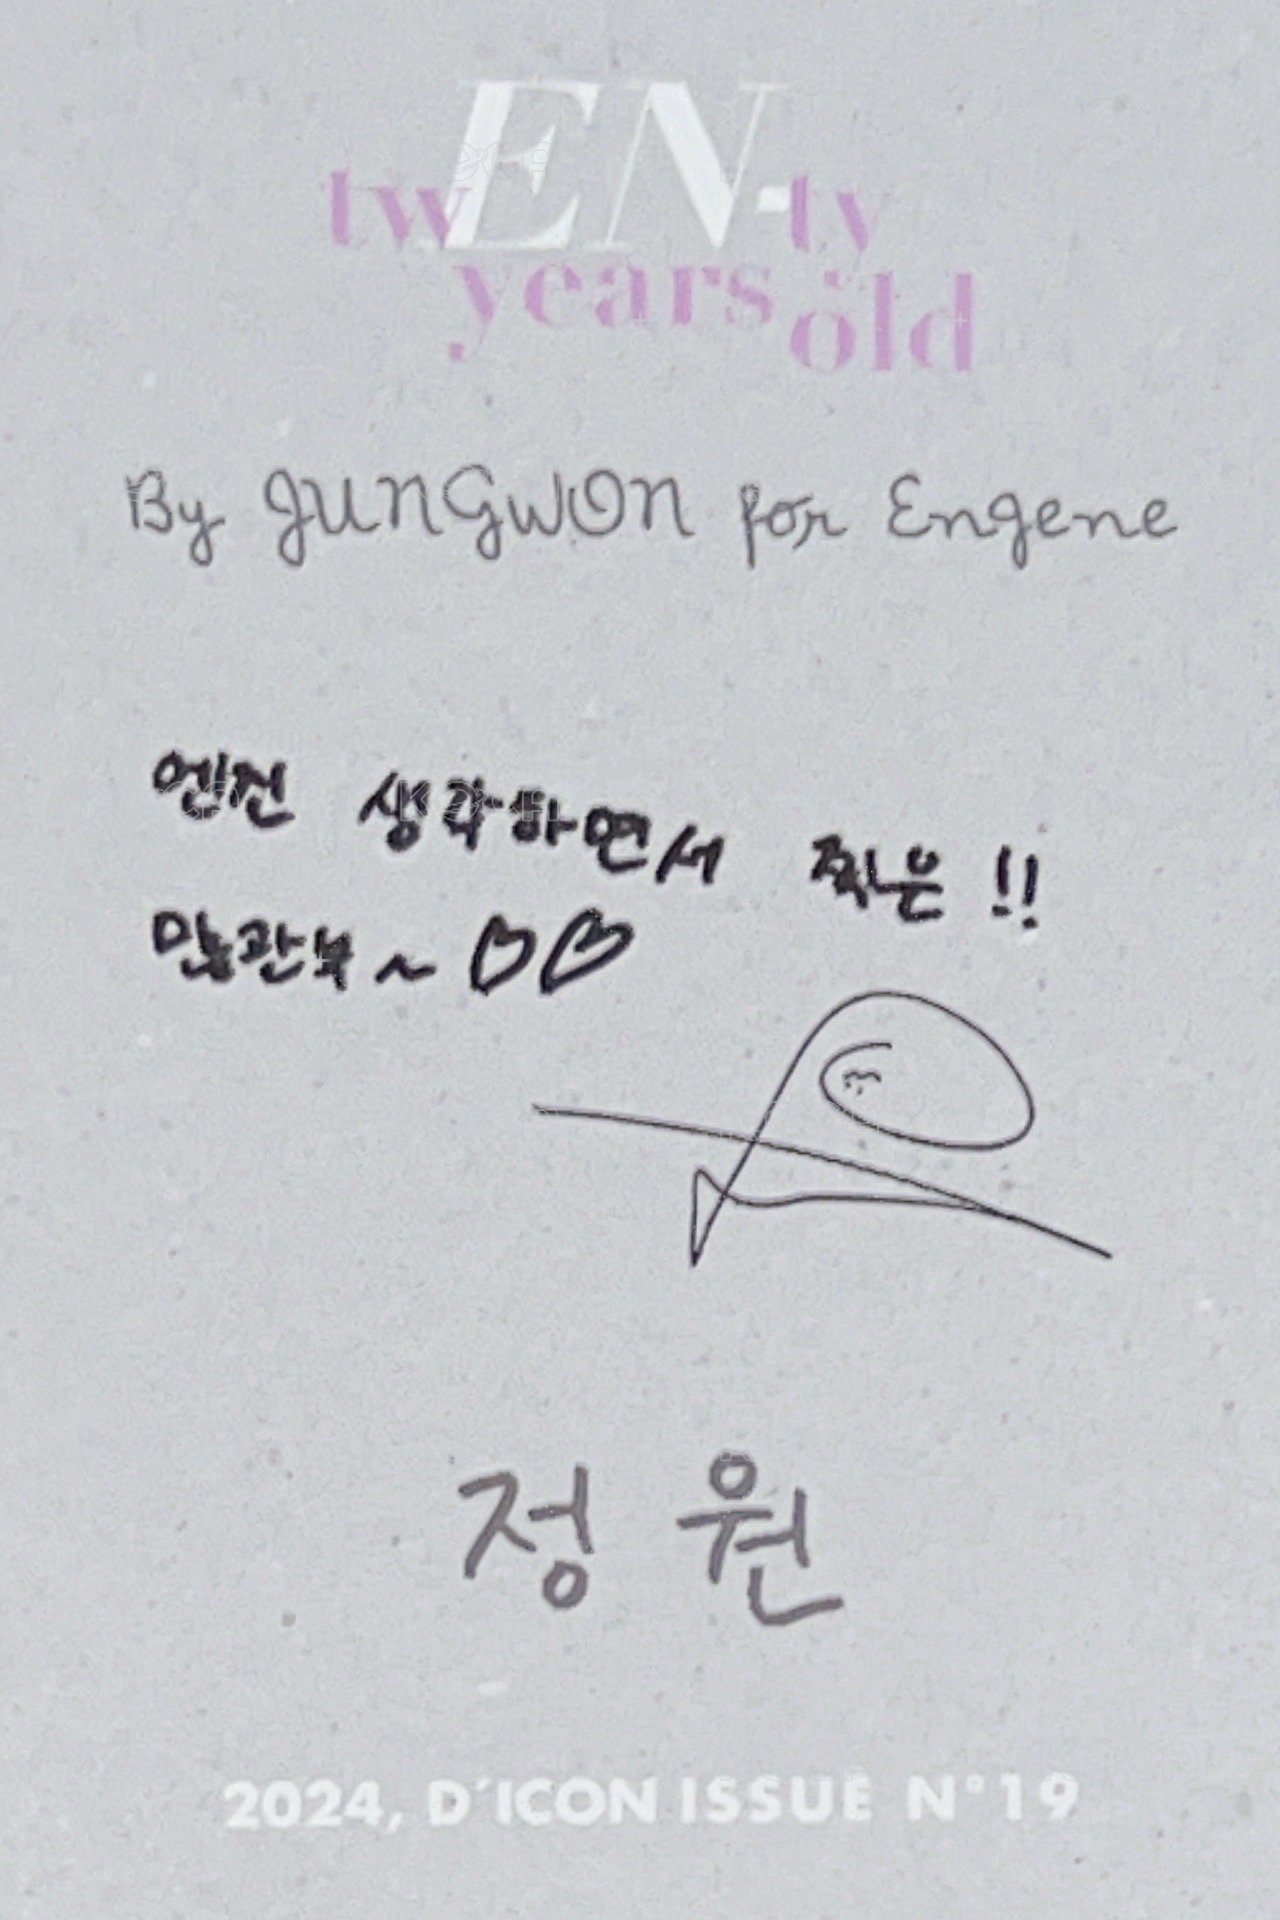 twEN-ty
years old
By JUNGWON for Engene
엔진 생각하면서 찍은 !!
많관부~ ♡♡
정원
2024, D'ICON ISSUE N°19